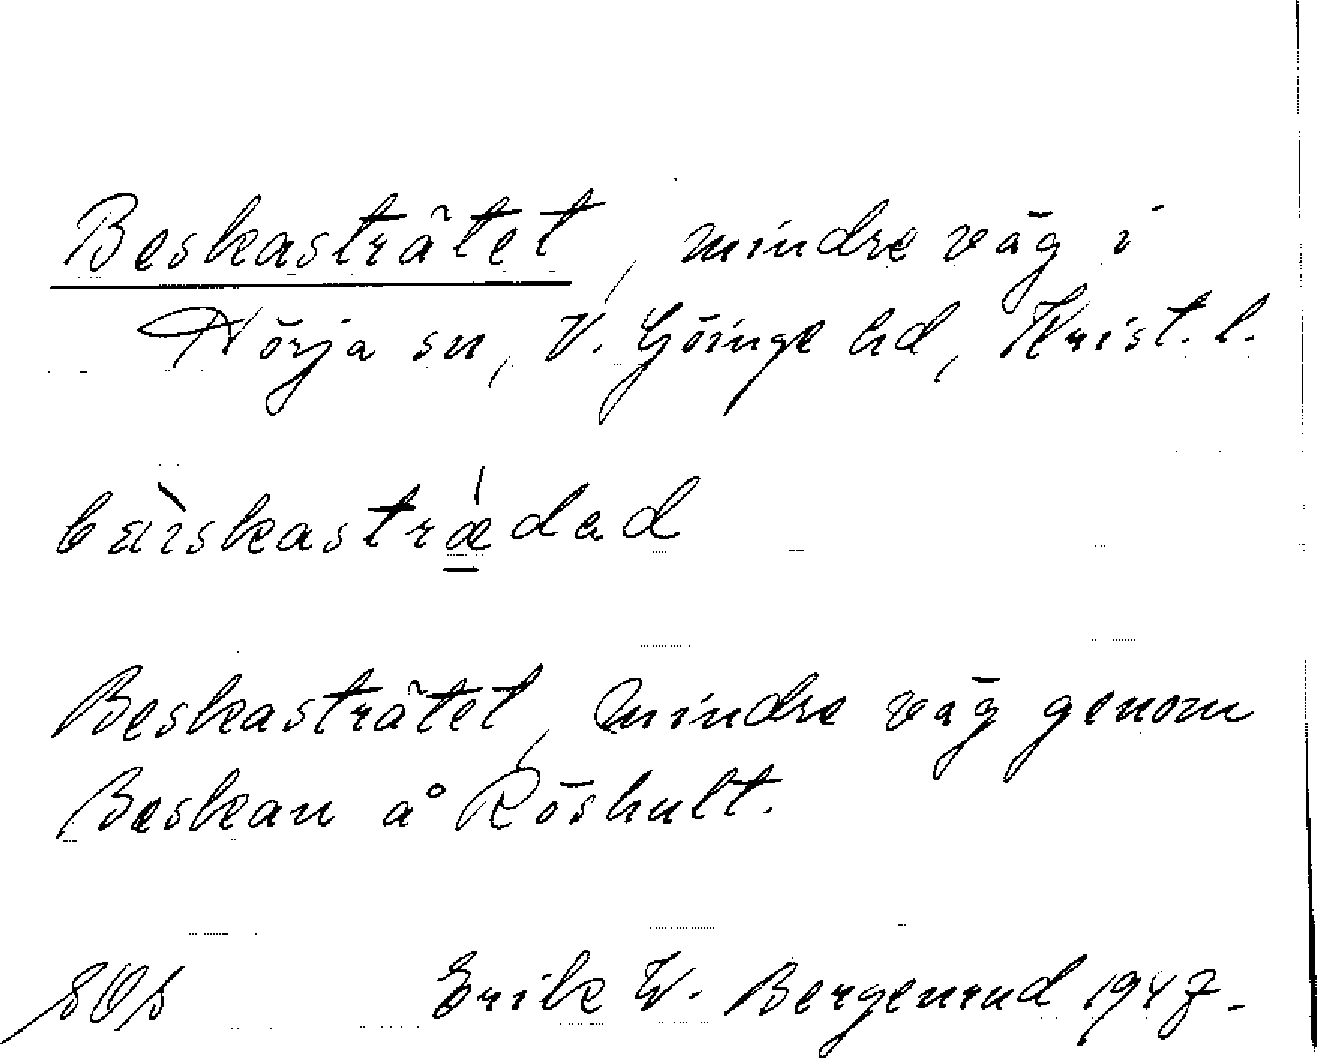 Beskasträtet, mindre väg i
Hörja sn, V. Göinge hd, Krist. l.
bæ̀iskastrǽ̱dad
Beskasträtet, mindre väg genom
Beskan å Röshult.
Erik W. Bergenrud 1947.